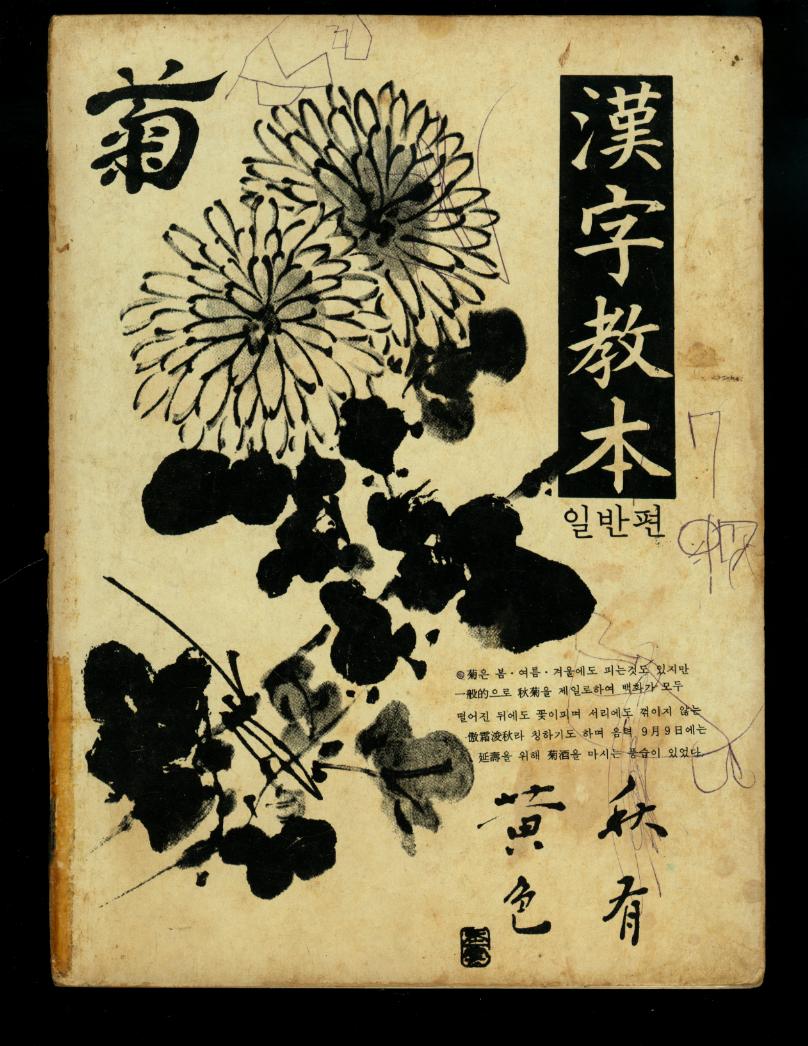 菊
漢字教本
일반편
◎菊은 봄·여름·겨울에도 피는것도 있지만
一般的으로 秋菊을 제일로하여 백화가 모두
떨어진 뒤에도 꽃이피며 서리에도 꺾이지 않는
傲霜淩秋라 칭하기도 하며 음력 9月9日에는
延壽을 위해 菊酒을 마시는 풍습이 있었다.
秋有
黃色